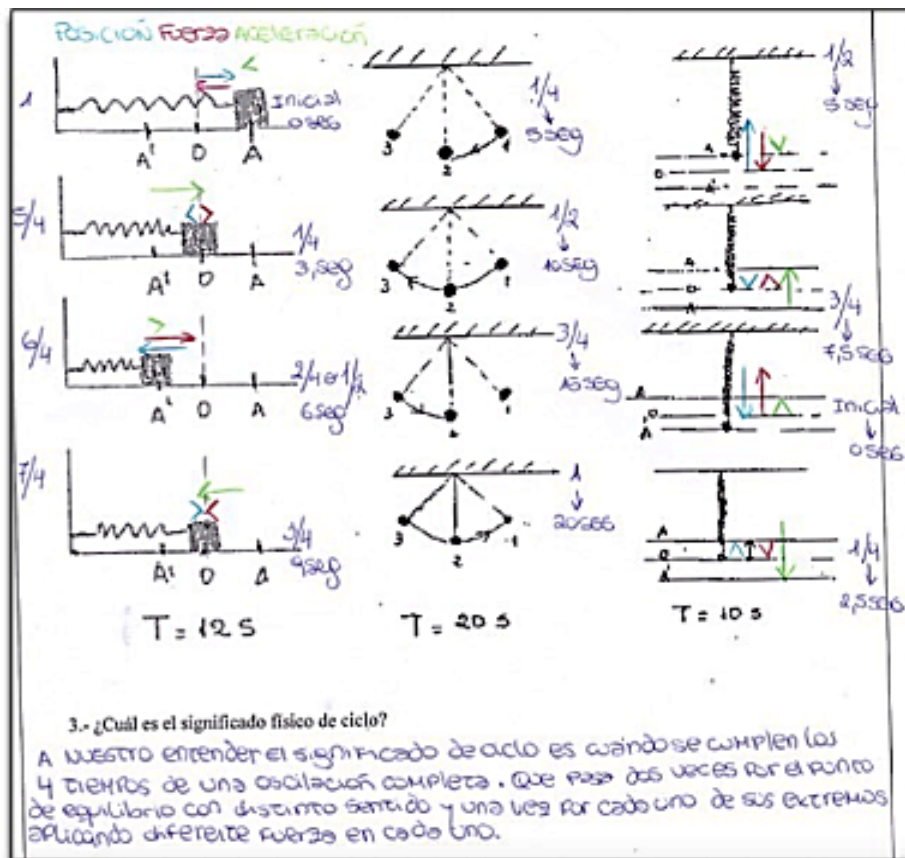 POSICIÓN FUERZA ACELERACIÓN
1
Inicial
0 seg
A' O A
5/4
1/4
3,seg
A' O A
6/4
2/4 o 1/2
6 seg
A' O A
7/4
3/4
9,seg
A' O A
T = 12 S
1/4
5 seg
3 2 1
1/2
10 seg
3 2 1
3/4
15 seg
3 2 1
1
20 seg
3 2 1
T = 20 s
1/2
5 seg
A
O
A'
3/4
7,5 seg
A
O
A
Inicial
0 seg
A
O
A
1/4
2,5 seg
A
O
A'
T = 10 s
3.- ¿Cuál es el significado físico de ciclo?
A NUESTRO entender el significado de ciclo es cuándo se cumplen los
4 tiempos de una oscilación completa. Que pasa dos veces por el punto
de equilibrio con distinto sentido y una vez por cada uno de sus extremos
aplicando diferente fuerza en cada uno.